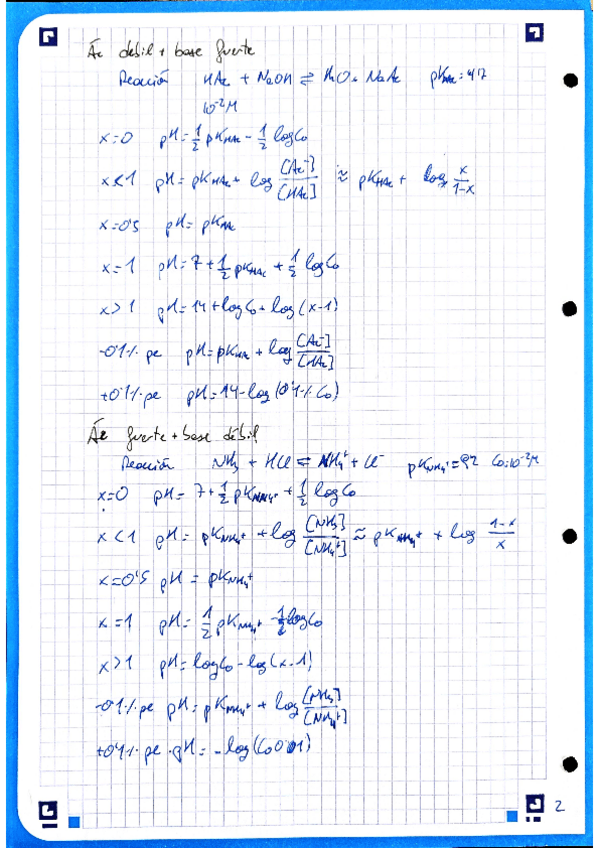 Ác débil + base fuerte
Reacción HAc + NaOH ⇌ H₂O + NaAc pK_HAc = 4'7
10⁻² M
x=0 pH = 1/2 pK_HAc - 1/2 log C₀
x<1 pH = pK_HAc + log [Ac⁻]/[HAc] ≈ pK_HAc + log x/1-x
x=0'5 pH = pK_HAc
x=1 pH = 7 + 1/2 pK_HAc + 1/2 log C₀
x>1 pH = 14 + log C₀ + log (x-1)
-0'1% pe pH = pK_HAc + log [Ac⁻]/[HAc]
+0'1% pe pH = 14 - log (0'1% C₀)
Ác fuerte + base débil
Reacción NH₃ + HCl ⇌ NH₄⁺ + Cl⁻ pK_NH₄⁺ = 9'2 C₀ = 10⁻² M
x=0 pH = 7 + 1/2 pK_NH₄⁺ + 1/2 log C₀
x<1 pH = pK_NH₄⁺ + log [NH₃]/[NH₄⁺] ≈ pK_NH₄⁺ + log 1-x/x
x=0'5 pH = pK_NH₄⁺
x=1 pH = 1/2 pK_NH₄⁺ - 1/2 log C₀
x>1 pH = log C₀ - log (x-1)
-0'1% pe pH = pK_NH₄⁺ + log [NH₃]/[NH₄⁺]
+0'1% pe pH = -log (C₀ 0'01)
2